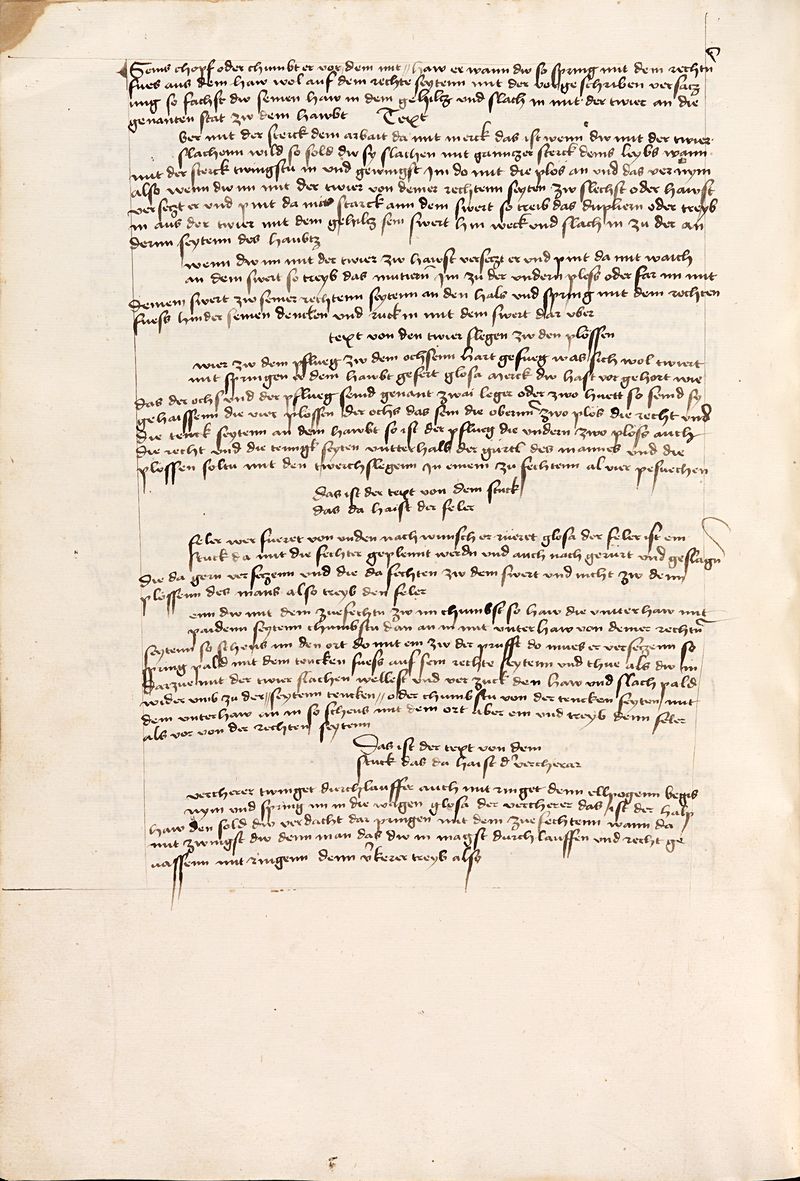 Seins chopf oder chumbt er vor dem mit haw er wann dw so spring mit dem rechtn
fues aus dem haw wol auf dem rechte seytenn mit der vor geschriben versatz
ung so fachst dw seinen haw in dem gehiltz und slach in mit der twier an die
genanten stat zw dem hawbt Text
Ver mit der sterck dem arbait da mit merck das ist wenn dw mit der twier
slachenn wild so sold dw sy slachen mit gantzer sterck deins leybs wann
mit der sterck twingstu in und gewingst im do mit die plos an und das vernym
also wenn dw im mit der twier von deiner rechtenn seyten zw slechst oder hawst
versetzt er und pint da mit starck ann dem swert so treib das dupliern oder treyb
in aus der twier mit dem gehiltz sein swert hin weck und slach in zu der an
dernn seytenn des haubtz
wenn dw im mit der twier zw hawst versetzt er und pint da mit waich
an dem swert so treyb das mutiern im zu der undern ploss oder far im mit
deinem swert zw seiner rechtenn seytenn an den hals und spring mit dem rechten
fuess hinder seinen dencken und ruck in mit dem swert dar uber
text von den twier slegen zw den plossen
wier zw dem pflueg zw dem ochsenn hart gefueg was sich wol twiert
mit springen dem hawbt gefert glosa merck dw hast vor gehort wie
das der ochs und der pflueg seind genant zwai leger oder zwo huett so seind sy
gehaissenn die vier plossen der ochs das sein die obernn zwo plos die recht und
die tenck seytenn an dem hawbt so ist der pflueg die undern zwo ploss auch
die recht und die tenngk seyten untterhalb der gürtl des mannes und die
plossen soltu mit den twerchslegenn in einem zu fechtenn al vier pesuechen
das ist der text von dem stuck
das da haist der feler
feler wer fueret von unden nach wunsch er rueret glosa der feler ist ein
stuck da mit die fechter geplennt werdn und auch nach gerürt und geslagn
die da gern versetzenn und die da fechten zw dem swert und nicht zw denn
plossenn des mans also treyb den feler
enn dw mit dem zuefechtn zw im chumbst so haw die unnterhaw mit
paidenn seytenn chumbstu dan an in mit unterhaw von deiner rechtn
seytenn so scheus im den ort do mit ein zw der prusst do mues er versetzenn so
spring pald mit dem tencken fuess auf sein rechte seytenn und thue als dw im
darzue mit der twier slachen wellest und verzuck den haw und slach pald
wider umb zu der seytenn tencken oder chumbstu von der tencken seyten mit
dem unterhaw an in so scheus mit dem ort aber ein und treyb denn feler
als vor von der rechten seytenn
Das ist der text von dem
stuck das da haist d' vercherar
vercherer twinget durchlauffer auch mit ringet denn ellpogenn begis
nym und spring im in die wagen glosa der vercherer das ist der halp
haw den sold dw verdacht dar pringen mit dem zuefechtenn wann da
mit zwingst dw denn man das dw in magst durch lauffen und recht ge
vassenn mit ringenn denn v'kerer treyb also